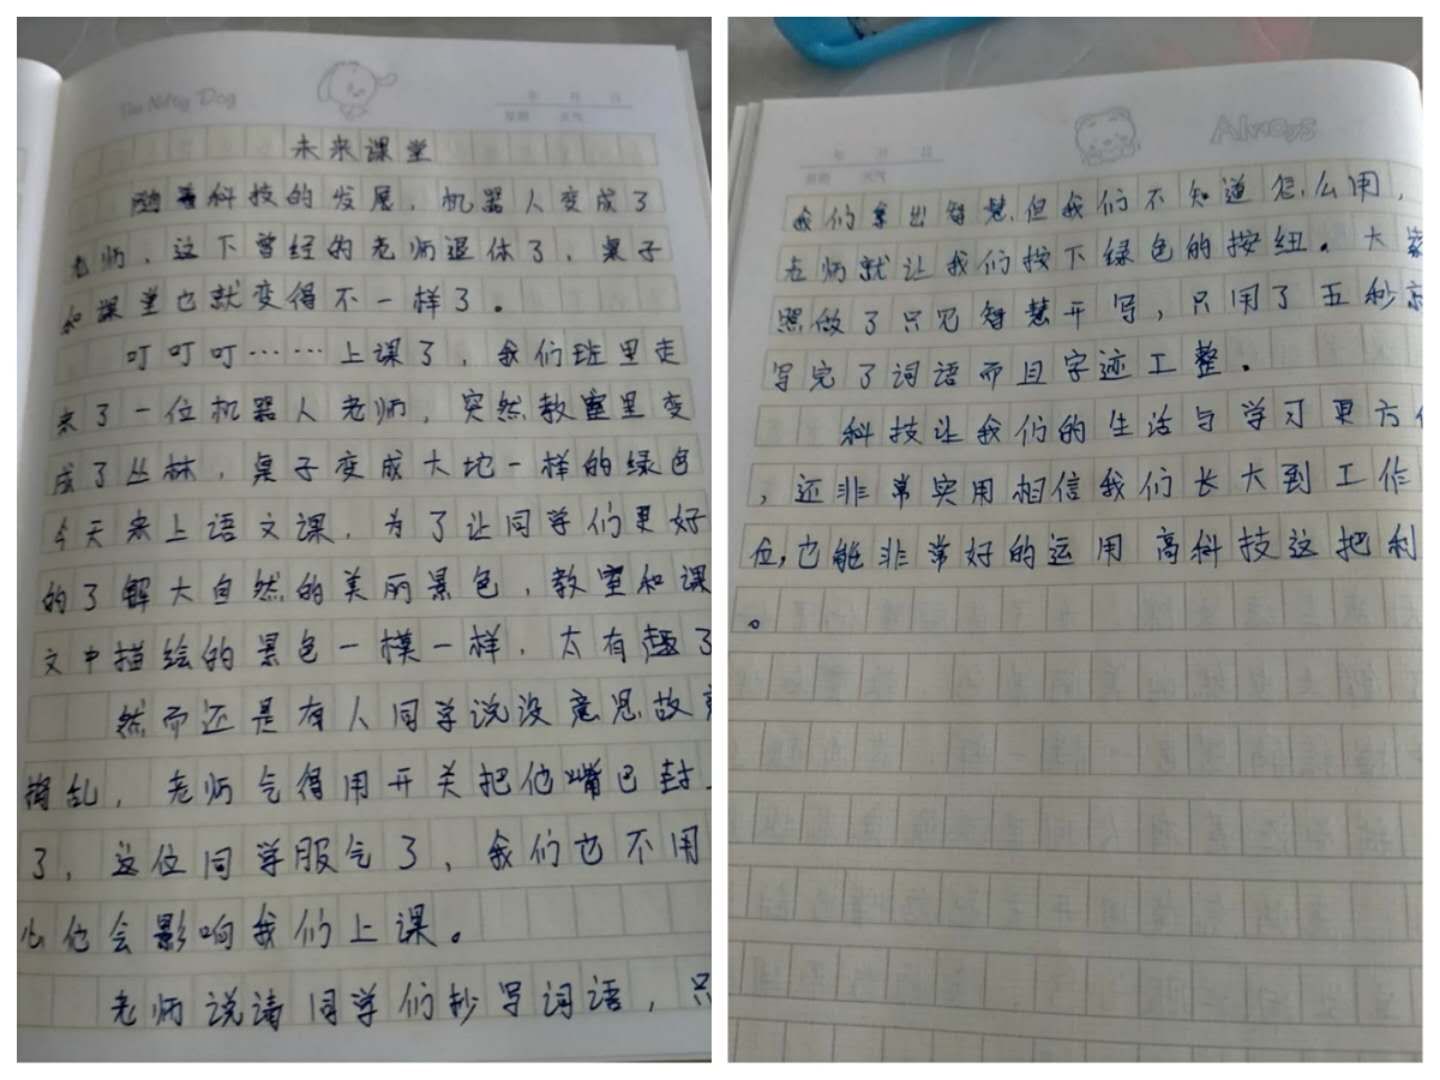 The Nutty Dog
年 月 日
星期 天气
未来课堂
随着科技的发展，机器人变成了
老师，这下曾经的老师退休了，桌子
和课堂也就变得不一样了。
叮叮叮……上课了，我们班里走
来了一位机器人老师，突然教室里变
成了丛林，桌子变成大地一样的绿色
今天来上语文课，为了让同学们更好
的了解大自然的美丽景色，教室和课
文中描绘的景色一模一样，太有趣了
然而还是有人同学说没意思故意
捣乱，老师气得用开关把他嘴巴封上
了，这位同学服气了，我们也不用
心他会影响我们上课。
老师说请同学们抄写词语，只
Always
年 月 日
星期 天气
我们拿出智慧，但我们不知道怎么用，
老师就让我们按下绿色的按纽。大家
照做了只见智慧开写，只用了五秒就
写完了词语而且字迹工整。
科技让我们的生活与学习更方
，还非常实用相信我们长大到工作
位，也能非常好的运用高科技这把利
。